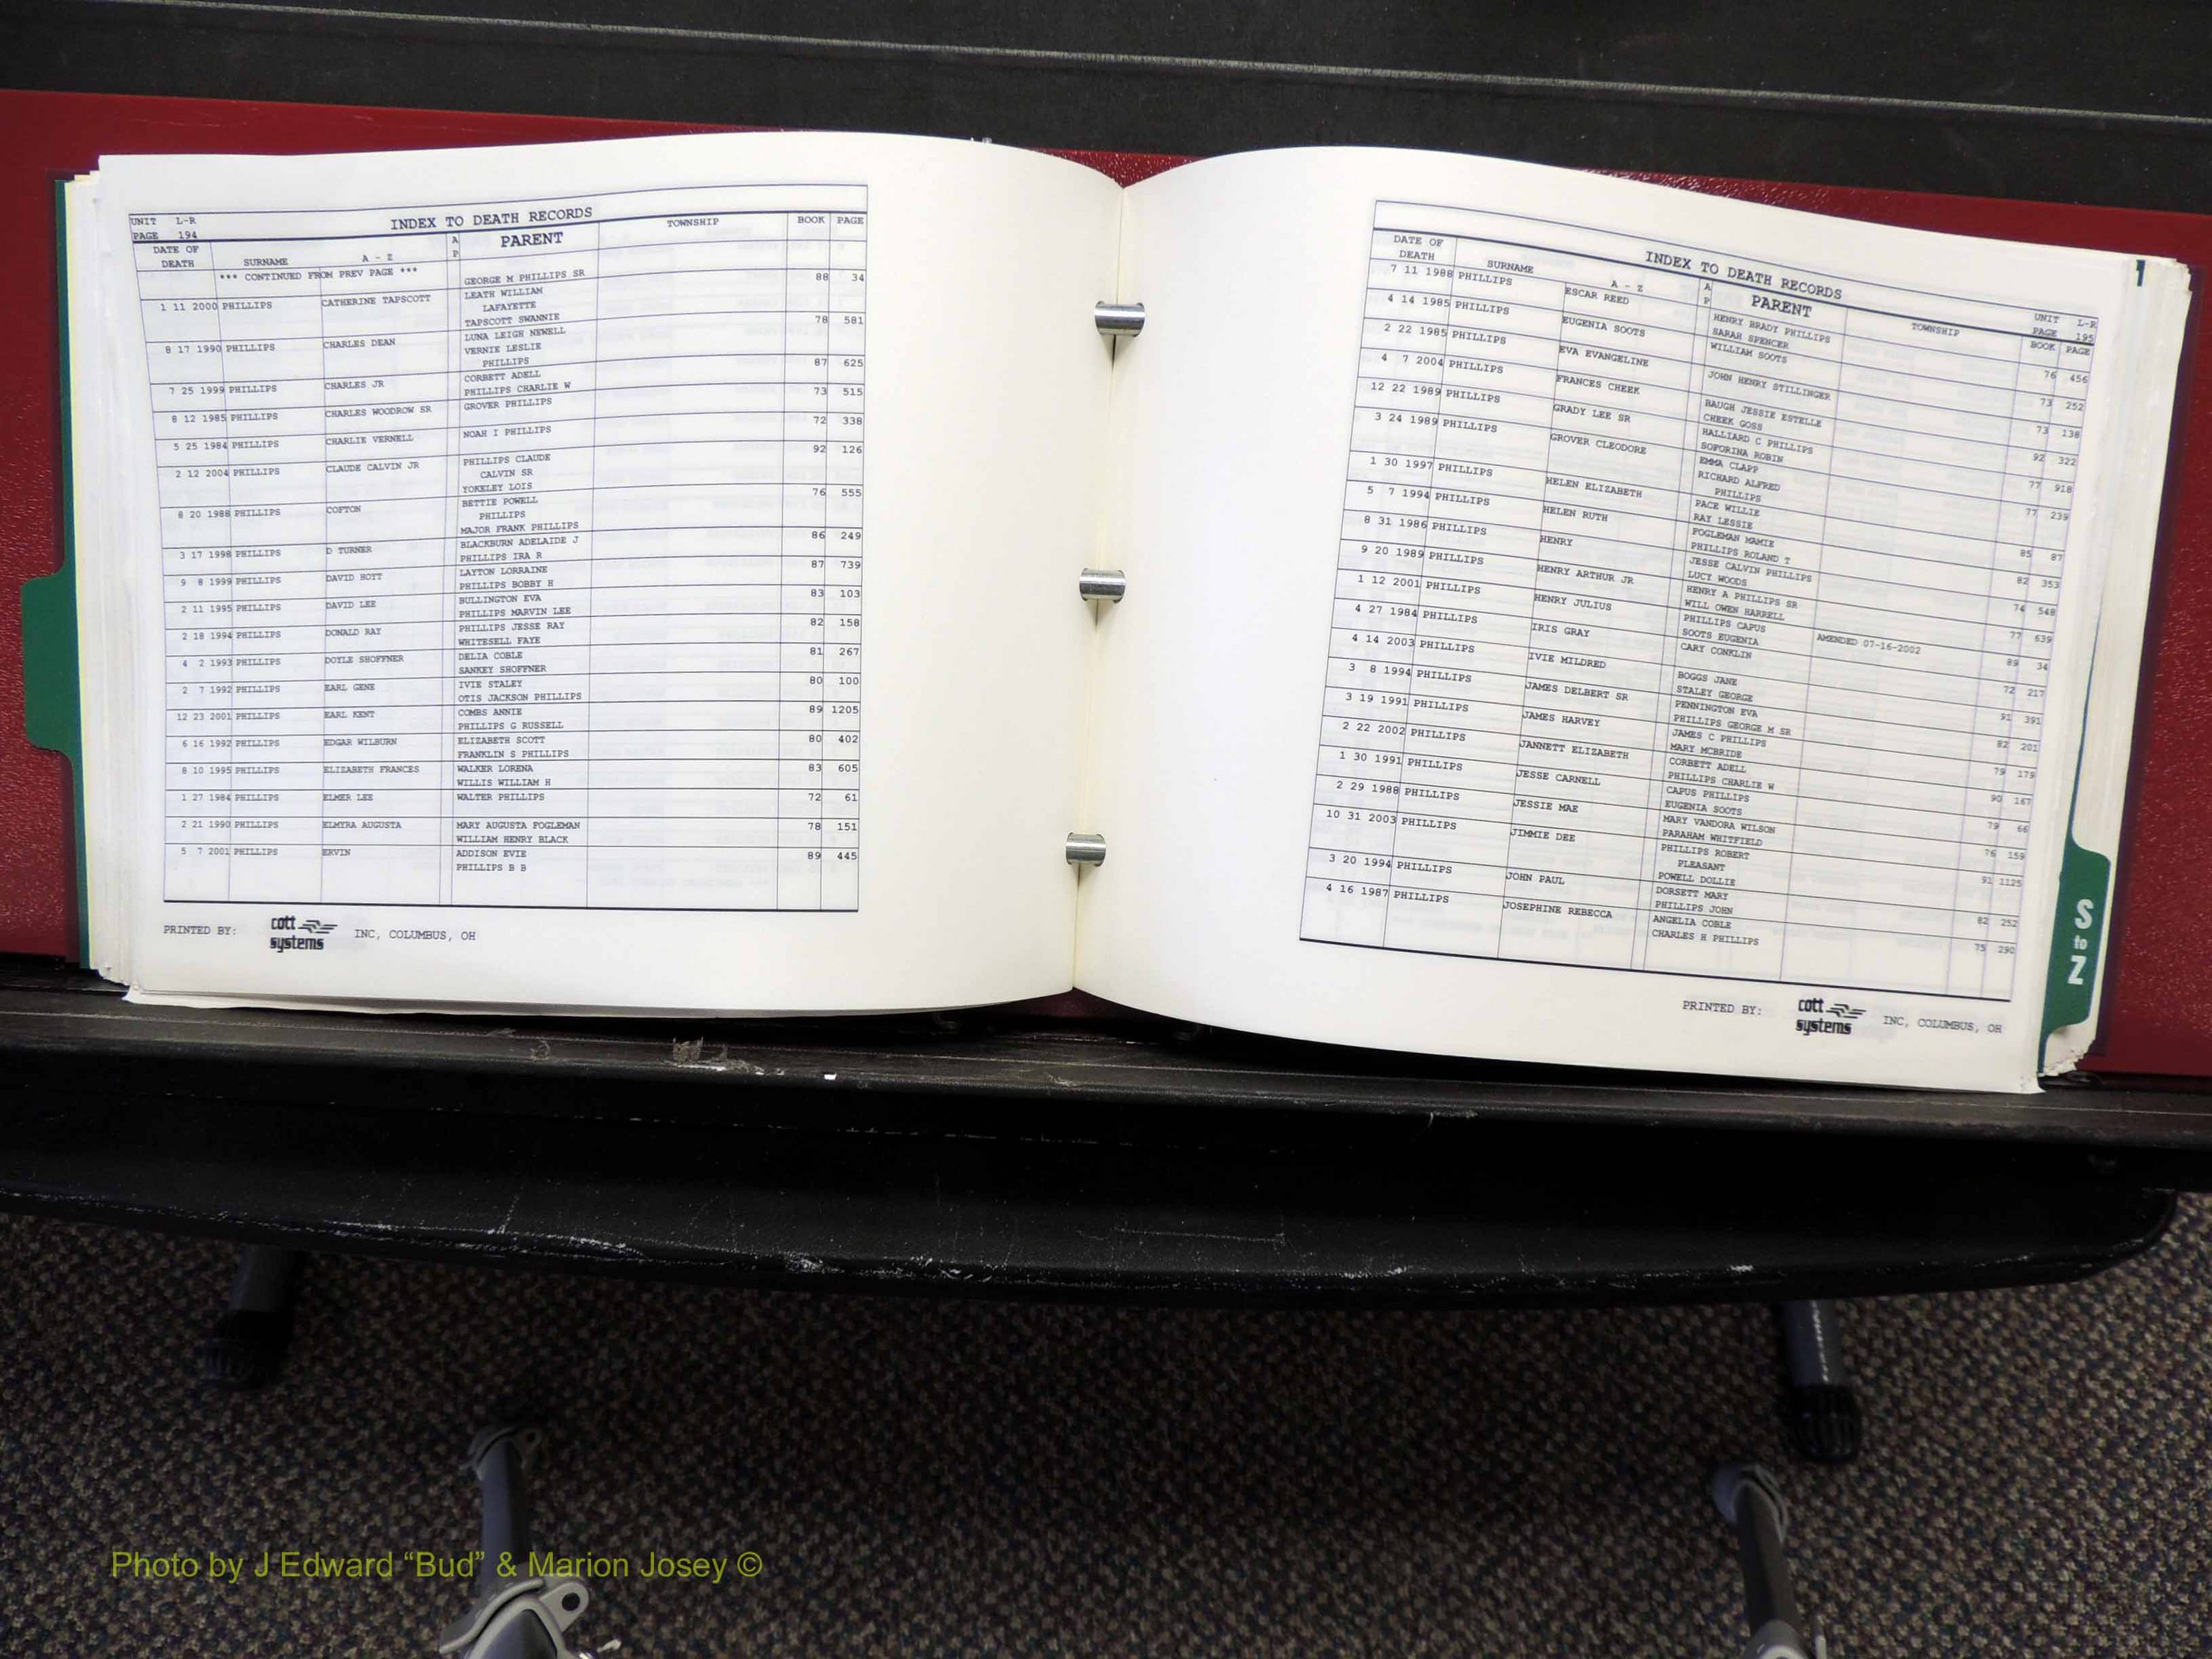 UNIT L-R
PAGE 194
INDEX TO DEATH RECORDS
DATE OF DEATH SURNAME A - Z A P PARENT TOWNSHIP BOOK PAGE
*** CONTINUED FROM PREV PAGE *** GEORGE M PHILLIPS SR
1 11 2000 PHILLIPS CATHERINE TAPSCOTT LEATH WILLIAM 88 34
LAFAYETTE
TAPSCOTT SWANNIE
8 17 1990 PHILLIPS CHARLES DEAN LUNA LEIGH NEWELL 78 581
VERNIE LESLIE
PHILLIPS
7 25 1999 PHILLIPS CHARLES JR CORBETT ADELL 87 625
PHILLIPS CHARLIE W
8 12 1985 PHILLIPS CHARLES WOODROW SR GROVER PHILLIPS 73 515
5 25 1984 PHILLIPS CHARLIE VERNELL NOAH I PHILLIPS 72 338
2 12 2004 PHILLIPS CLAUDE CALVIN JR PHILLIPS CLAUDE 92 126
CALVIN SR
YOKELEY LOIS
8 20 1988 PHILLIPS COFTON BETTIE POWELL 76 555
PHILLIPS
MAJOR FRANK PHILLIPS
3 17 1998 PHILLIPS D TURNER BLACKBURN ADELAIDE J 86 249
PHILLIPS IRA R
9 8 1999 PHILLIPS DAVID HOYT LAYTON LORRAINE 87 739
PHILLIPS BOBBY H
2 11 1995 PHILLIPS DAVID LEE BULLINGTON EVA 83 103
PHILLIPS MARVIN LEE
2 18 1994 PHILLIPS DONALD RAY PHILLIPS JESSE RAY 82 158
WHITESELL FAYE
4 2 1993 PHILLIPS DOYLE SHOFFNER DELIA COBLE 81 267
SANKEY SHOFFNER
2 7 1992 PHILLIPS EARL GENE IVIE STALEY 80 100
OTIS JACKSON PHILLIPS
12 23 2001 PHILLIPS EARL KENT COMBS ANNIE 89 1205
PHILLIPS G RUSSELL
6 16 1992 PHILLIPS EDGAR WILBURN ELIZABETH SCOTT 80 402
FRANKLIN S PHILLIPS
8 10 1995 PHILLIPS ELIZABETH FRANCES WALKER LORENA 83 605
WILLIS WILLIAM H
1 27 1984 PHILLIPS ELMER LEE WALTER PHILLIPS 72 61
2 21 1990 PHILLIPS ELMYRA AUGUSTA MARY AUGUSTA FOGLEMAN 78 151
WILLIAM HENRY BLACK
5 7 2001 PHILLIPS ERVIN ADDISON EVIE 89 445
PHILLIPS B B
PRINTED BY: cott systems INC, COLUMBUS, OH
INDEX TO DEATH RECORDS
UNIT L-R
PAGE 195
DATE OF DEATH SURNAME A - Z A P PARENT TOWNSHIP BOOK PAGE
7 11 1988 PHILLIPS ESCAR REED HENRY BRADY PHILLIPS 76 456
SARAH SPENCER
4 14 1985 PHILLIPS EUGENIA SOOTS WILLIAM SOOTS 73 252
2 22 1985 PHILLIPS EVA EVANGELINE JOHN HENRY STILLINGER 73 138
4 7 2004 PHILLIPS FRANCES CHEEK BAUGH JESSIE ESTELLE 92 322
CHEEK GOSS
12 22 1989 PHILLIPS GRADY LEE SR HALLIARD C PHILLIPS 77 918
SOFORINA ROBIN
3 24 1989 PHILLIPS GROVER CLEODORE EMMA CLAPP 77 239
RICHARD ALFRED
PHILLIPS
1 30 1997 PHILLIPS HELEN ELIZABETH PACE WILLIE 85 87
RAY LESSIE
5 7 1994 PHILLIPS HELEN RUTH FOGLEMAN MAMIE 82 353
PHILLIPS ROLAND T
8 31 1986 PHILLIPS HENRY JESSE CALVIN PHILLIPS 74 548
LUCY WOODS
9 20 1989 PHILLIPS HENRY ARTHUR JR HENRY A PHILLIPS SR 77 639
WILL OWEN HARRELL
1 12 2001 PHILLIPS HENRY JULIUS PHILLIPS CAPUS AMENDED 07-16-2002 89 34
SOOTS EUGENIA
4 27 1984 PHILLIPS IRIS GRAY CARY CONKLIN 72 217
4 14 2003 PHILLIPS IVIE MILDRED BOGGS JANE 91 391
STALEY GEORGE
3 8 1994 PHILLIPS JAMES DELBERT SR PENNINGTON EVA 82 201
PHILLIPS GEORGE M SR
3 19 1991 PHILLIPS JAMES HARVEY JAMES C PHILLIPS 79 179
MARY MCBRIDE
2 22 2002 PHILLIPS JANNETT ELIZABETH CORBETT ADELL 90 167
PHILLIPS CHARLIE W
1 30 1991 PHILLIPS JESSE CARNELL CAPUS PHILLIPS 79 66
EUGENIA SOOTS
2 29 1988 PHILLIPS JESSIE MAE MARY VANDORA WILSON 76 159
PARAHAM WHITFIELD
10 31 2003 PHILLIPS JIMMIE DEE PHILLIPS ROBERT 91 1125
PLEASANT
POWELL DOLLIE
3 20 1994 PHILLIPS JOHN PAUL DORSETT MARY 82 252
PHILLIPS JOHN
4 16 1987 PHILLIPS JOSEPHINE REBECCA ANGELIA COBLE 75 290
CHARLES H PHILLIPS
PRINTED BY: cott systems INC, COLUMBUS, OH
S to Z
Photo by J Edward “Bud” & Marion Josey ©